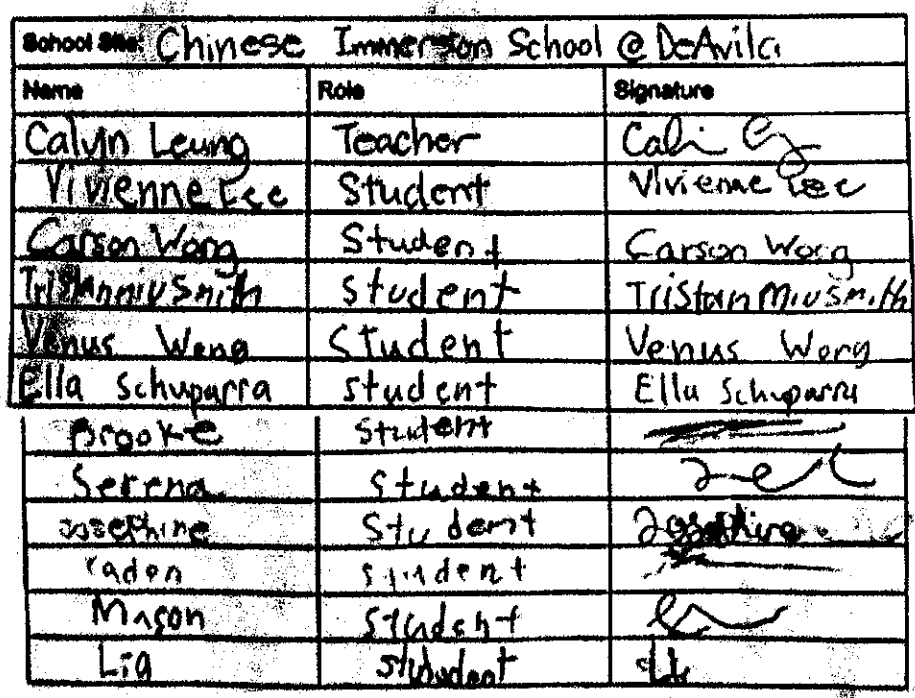 School Site: Chinese Immersion School @ DeAvila
Name Role Signature
Calvin Leung Teacher
Vivienne Lee Student Vivienne Lee
Carson Wong Student Carson Wong
Tristan Smith Student Tristan Smith
Venus Wong Student Venus Wong
Ella Schuparra student Ella Schuparra
Brooke Student
Serena Student
Josephine Student Josephine
student
Mason student
Lia